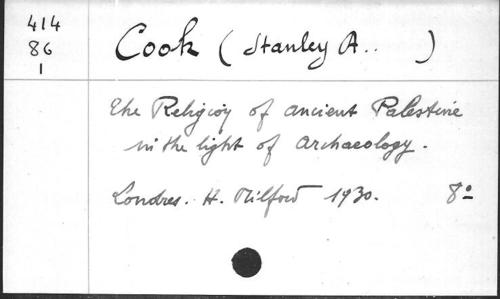 414
86
1
Cook (Stanley A.. )
The Religion of ancient Palestine
in the light of Archaeology.
Londres. H. Milford 1930. 8º